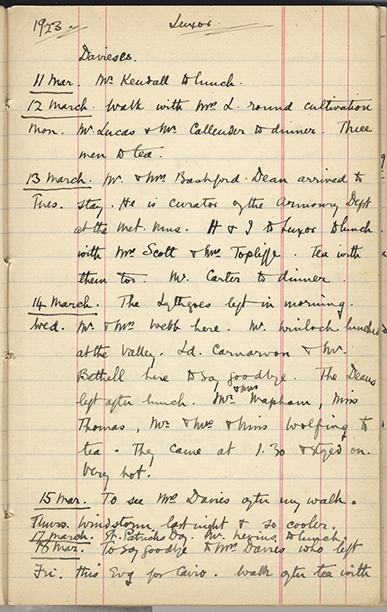 1923. Luxor.
Davieses.
11 Mar. Mr. Kendall to lunch.
12 March. Walk with Mrs. L. round cultivation
Mon. Mr Lucas & Mr. Callender to dinner. Three
men to tea.
13 March. Mr. & Mrs Bashford Dean arrived to
Tues. stay. He is curator of the Armoury Dept
at the Met. Mus. H & I to Luxor to lunch
with Mrs Scott & Mrs Topliffe. Tea with
them too. Mr. Carter to dinner.
14 March. The Lythgoes left in morning.
Wed. Mr. & Mrs Webb here. Mr. Winlock lunched
at the Valley. Ld. Carnarvon & Mr.
Bethell here to say goodbye. The Deans
left after lunch. Mrs & Miss Mapham, Miss
Thomas, Mr & Mrs & Miss Wolfing to
tea. They came at 1.30 & stayed on.
Very hot!
15 Mar. To see Mrs Davies after my walk.
Thurs. Windstorm last night & so cooler.
17 March. St. Patricks Day. Mr. Levius to lunch.
16 Mar. To say goodbye to Mrs Davies who left
Fri. this Evg for Cairo. Walk after tea with